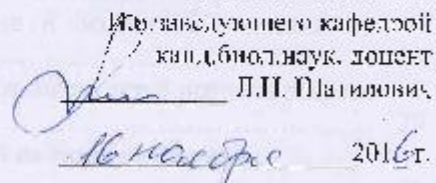 И.о.заведующего кафедрой
канд.биол.наук, доцент
Л.Н. Шатилович
16 ноября 2016г.